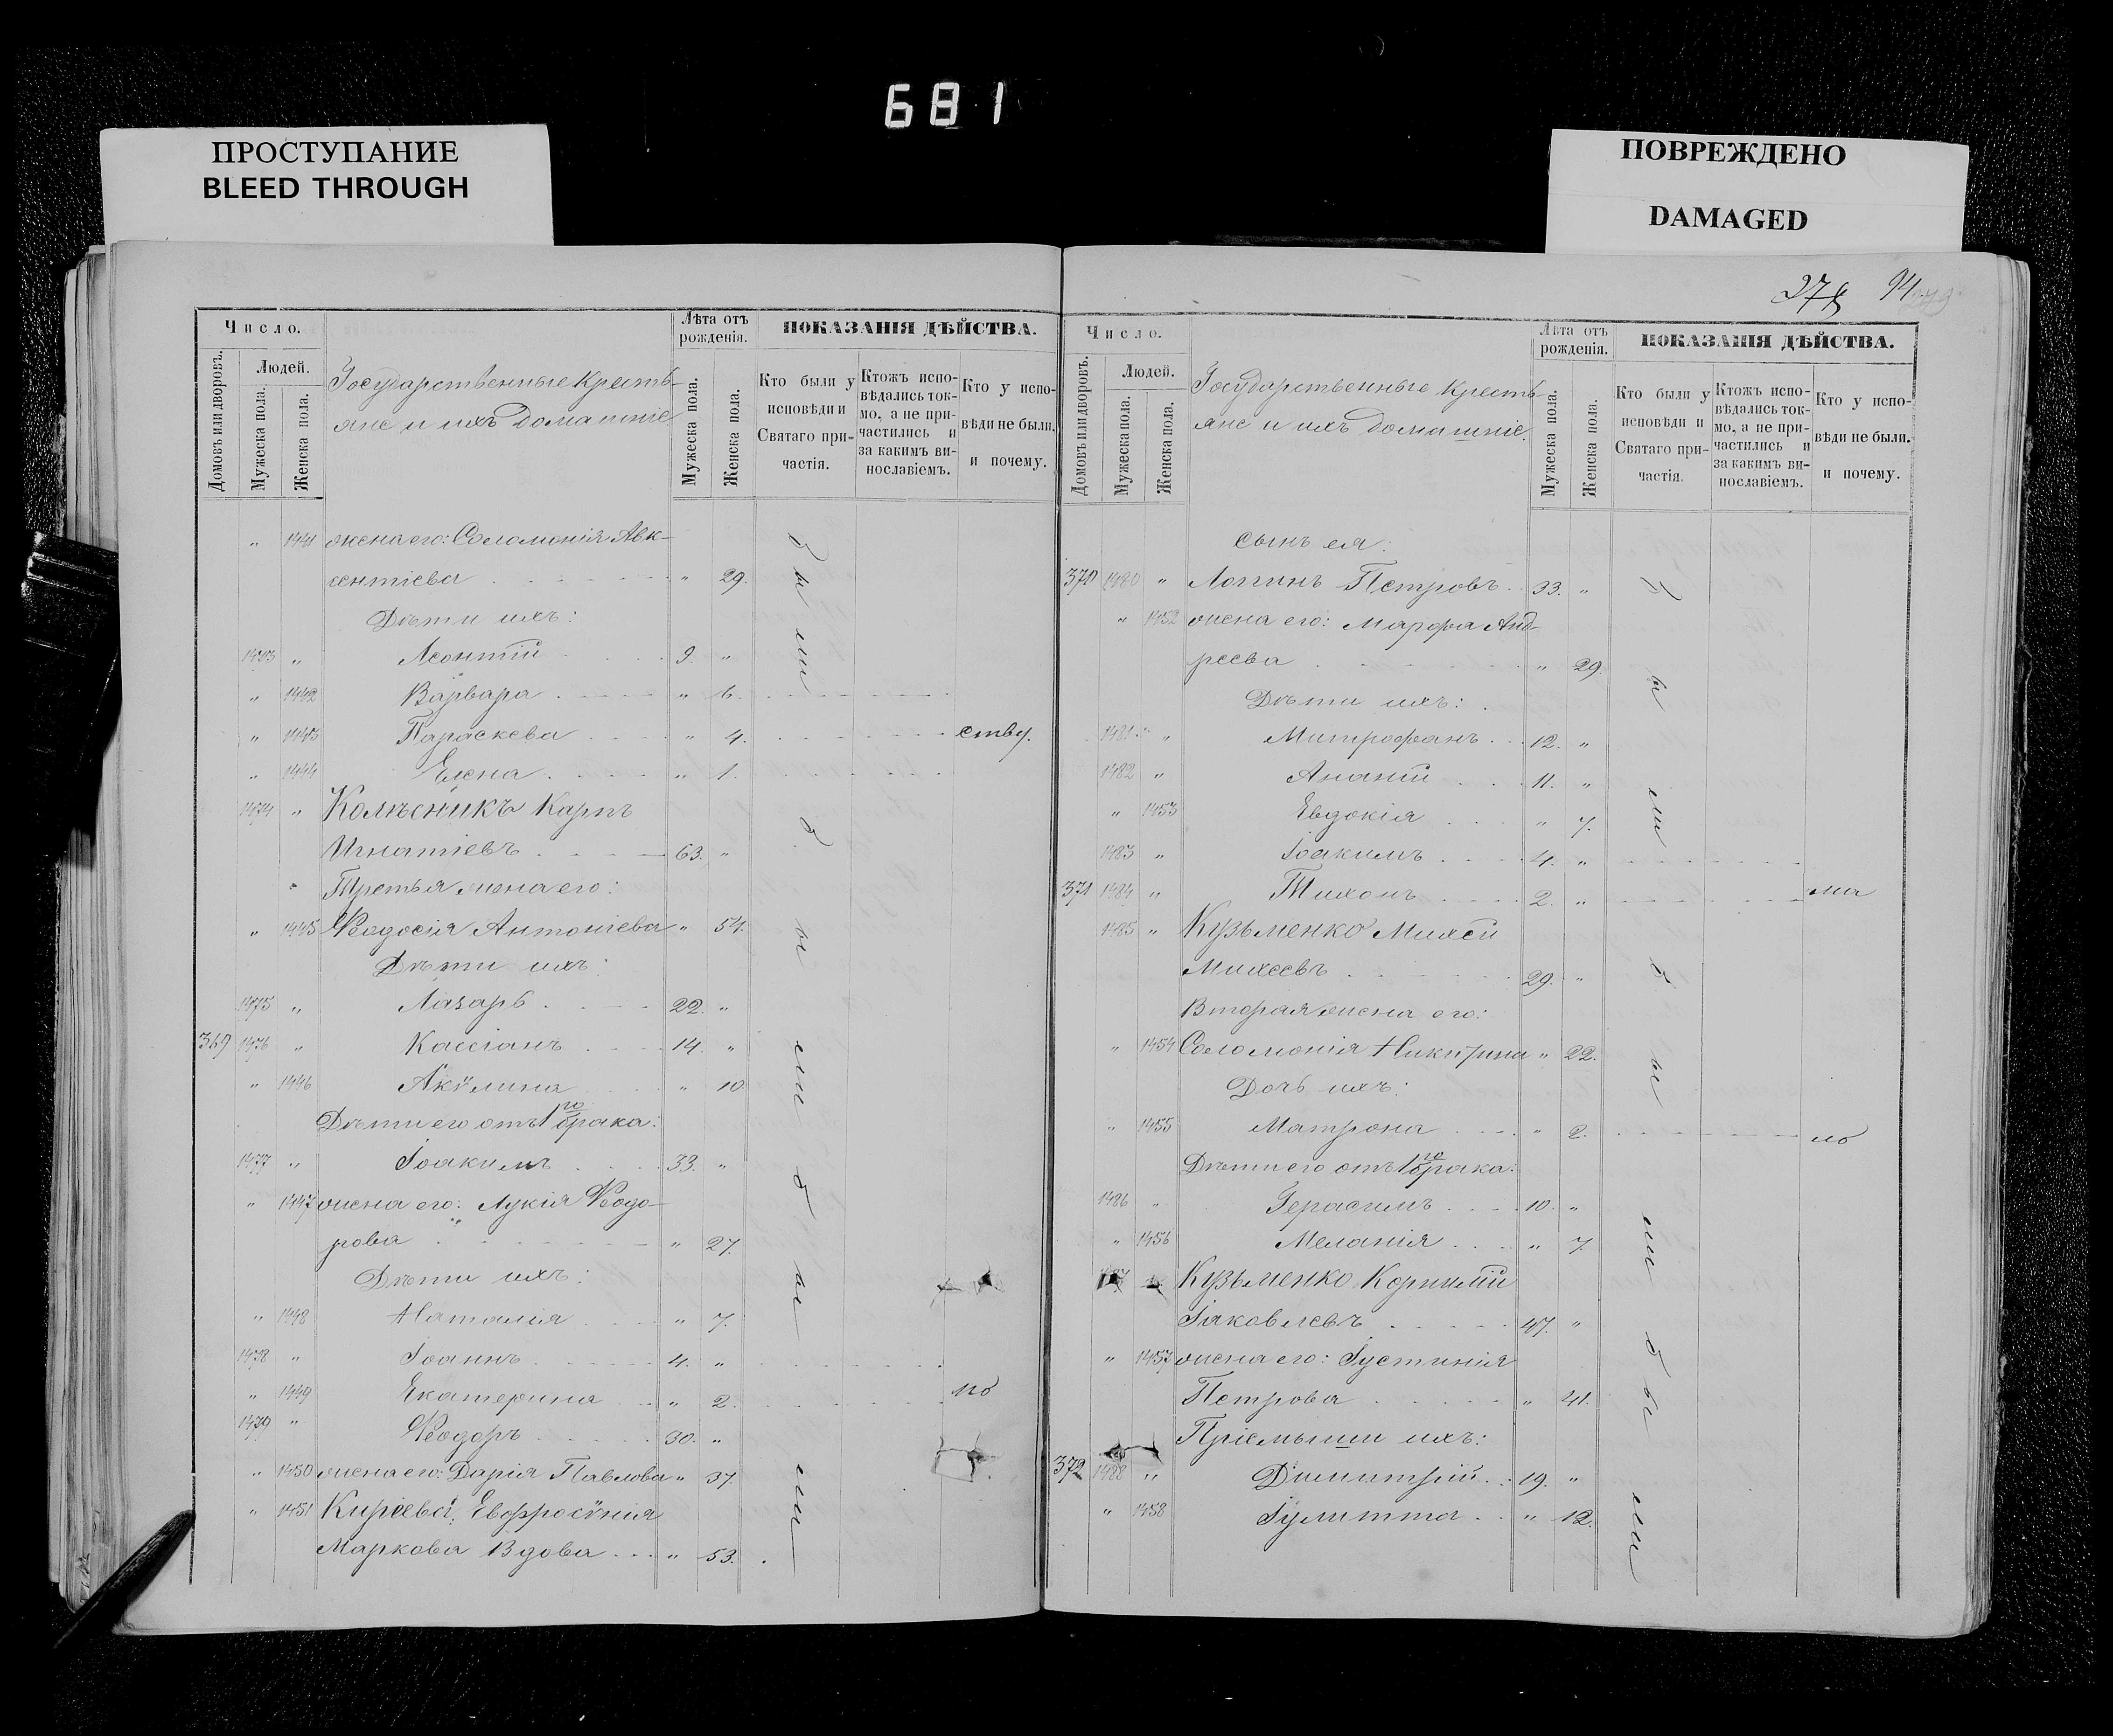 681
ПРОСТУПАНИЕ
BLEED THROUGH
ПОВРЕЖДЕНО
DAMAGED
94
Число.
Домовъ или дворовъ.
Людей.
Мужеска пола.
Женска пола.
Государственные кресть-
яне и ихъ домашніе
Лѣта отъ рожденія.
Мужеска пола.
Женска пола.
ПОКАЗАНІЯ ДѢЙСТВА.
Кто были у исповѣди и Святаго при-частія.
Ктожъ испо-вѣдались ток-мо, а не при-частились и за какимъ ви-нославіемъ.
Кто у испо-вѣди не были. и почему.
" 1441 жена его: Соломонія Авк-
сентіева " 29.
Дѣти ихъ:
1473 " Леонтій 9. "
" 1442 Варвара " 6.
" 1443 Параскева " 4. ству.
" 1444 Елена " 1.
1474 " Колѣсникъ Карпъ
Игнатіевъ 63. "
Третья жена его:
" 1445 Ѳеодосія Антоніева " 54.
Дѣти ихъ:
1475 " Лазарь 22. "
369 1476 " Кассіанъ 14. "
" 1446 Акѵлина " 10
Дѣти его отъ 1го брака:
1477 " Іоакимъ 33. "
" 1447 жена его: Лукія Ѳеодо-
рова " 27.
Дѣти ихъ:
" 1448 Наталія " 7.
1478 " Іоаннъ 4. "
" 1449 Екатерина " 2. по
1479 " Ѳеодоръ 30. "
" 1450 жена его: Дарія Павлова " 37.
" 1451 Кирѣева, Евфросѵнія
Маркова Вдова " 53.
были
были
были
Число.
Домовъ или дворовъ.
Людей.
Мужеска пола.
Женска пола.
Государственные кресть-
яне и ихъ домашніе.
Лѣта отъ рожденія.
Мужеска пола.
Женска пола.
ПОКАЗАНІЯ ДѢЙСТВА.
Кто были у исповѣди и Святаго при-частія.
Ктожъ испо-вѣдались ток-мо, а не при-частились и за какимъ ви-нославіемъ.
Кто у испо-вѣди не были. и почему.
сынъ ея:
370 1480 " Логгинъ Петровъ 33. "
" 1452 жена его: Марфа Анд-
реева " 29.
Дѣти ихъ:
1481 " Митрофанъ 12. "
1482 " Ананій 11. "
" 1453 Евдокія " 7.
1483 " Іоакимъ 4. "
371 1484 " Тихонъ 2. " ма
1485 " Кузьменко Михей
Михеевъ 29. "
Вторая жена его:
" 1454 Соломонія Никитина " 22.
Дочь ихъ:
" 1455 Матрона " 2. ло
Дѣти его отъ 1го брака:
1486 " Герасимъ 10. "
" 1456 Меланія " 7.
Кузьменко Корнилій
Іаковлевъ 47. "
" 1457 жена его: Іустинія
Петрова " 41.
Пріемыши ихъ:
372 1488 " Димитрій 19. "
" 1458 Іулитта " 12.
были
были
были